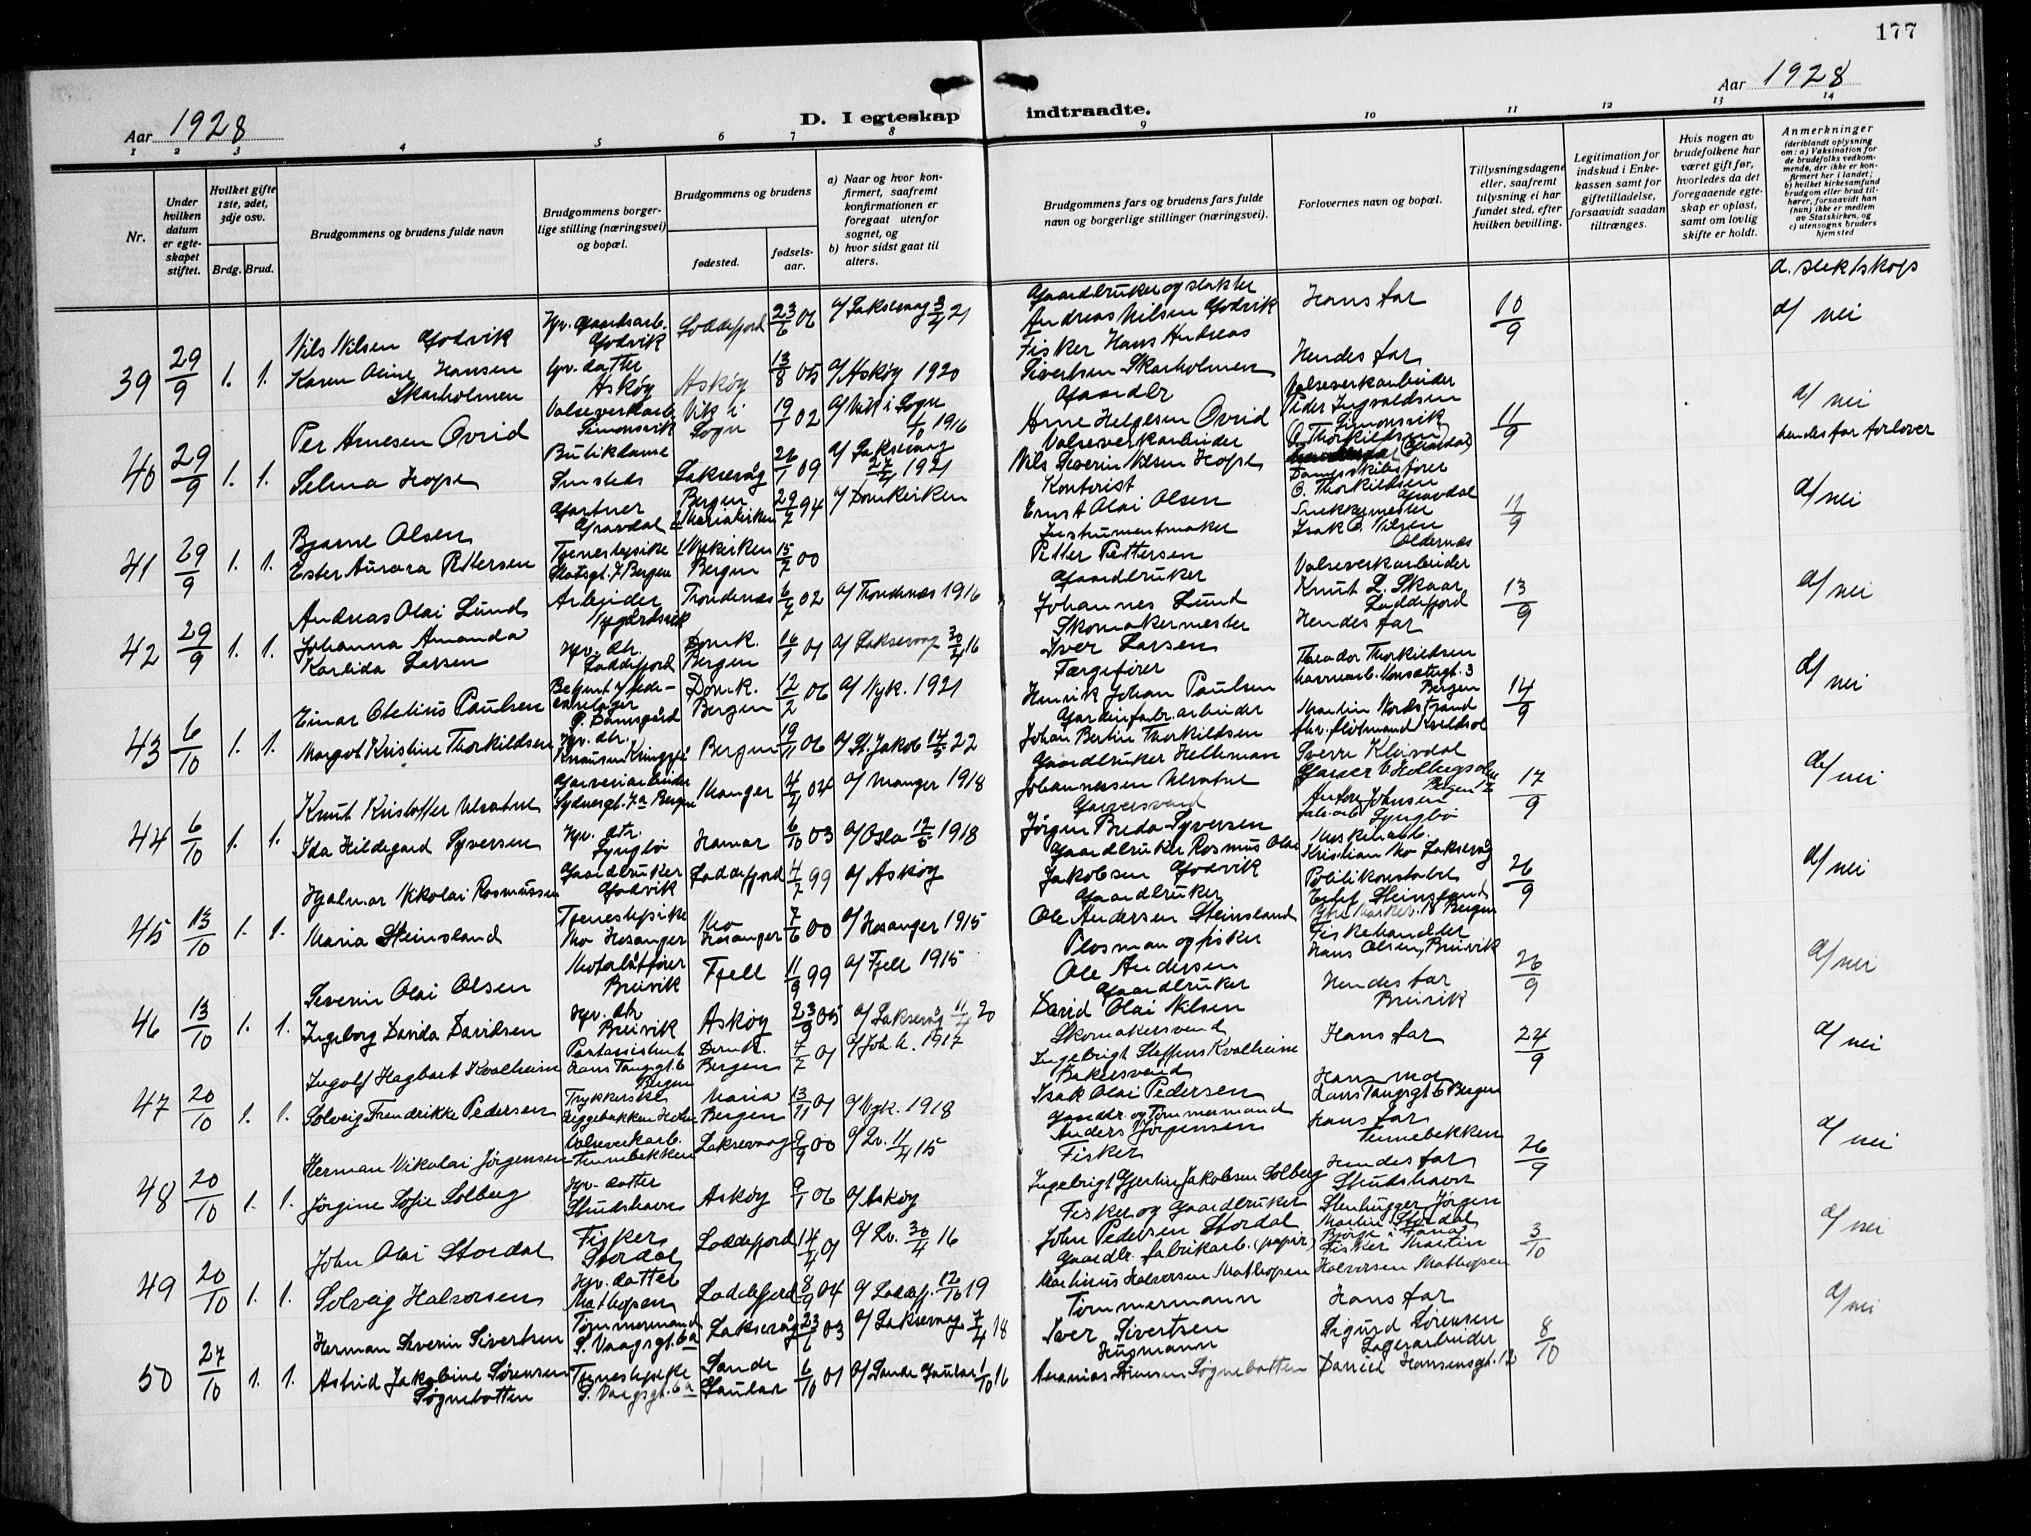 177
Aar 1928
D. I egteskap indtraadte.
Aar 1928
1 2 3 4 5 6 7 8 9 10 11 12 13 14
Nr.
Under hvilken datum er egteskapet stiftet.
Hvilket gifte 1ste, 2det, 3dje osv.
Brdg. Brud.
Brudgommens og brudens fulde navn
Brudgommens borgerlige stilling (næringsvei) og bopæl.
Brudgommens og brudens
fødested.
fødselsaar.
a) Naar og hvor konfirmert, saafremt konfirmationen er foregaat utenfor sognet, og
b) hvor sidst gaat til alters.
Brudgommens fars og brudens fars fulde navn og borgerlige stillinger (næringsvei).
Forlovernes navn og bopæl.
Tillysningsdagene eller, saafremt tillysning ei har fundet sted, efter hvilken bevilling.
Legitimation for indskud i Enkekassen samt for giftetilladelse, forsaavidt saadan tiltrænges.
Hvis nogen av brudefolkene har været gift før, hvorledes da det foregaaende egteskap er opløst, samt om lovlig skifte er holdt.
Anmerkninger (deriblandt oplysning om: a) Vaksination for de brudefolks vedkommende, der ikke er konfirmert her i landet; b) hvilket kirkesamfund brudgom eller brud tilhører, forsaavidt han (hun) ikke er medlem av Statskirken, og c) utensogns bruders hjemsted
d. slektskap
39 29/9 1. 1.
Nils Nilsen Godvik
Godvik
Loddefjord 23/6 06 a/ Laksevaag 3/4 21
Gaardbruker og slakter
Andreas Nilsen Godvik
Hans far
10/9
d/ nei
Karen Oline Hansen
Skarholmen
hv. datter
Askøy
Askøy 13/8 05 a/ Askøy 1920
Fisker Hans Andreas
Sivertsen Skarholmen
Hendes far
40 29/9 1. 1.
Per Arnesen Ovrid
Valseverkarb.
Simonsvik
Vik i Sogn 19/1 02 a/ Vik i Sogn 1/10 1916
Gaardbr
Arne Helgesen Ovrid
Valseverkarbeider
Peder Ingvaldsen
Simonsvik
11/9
d/ nei
hendes far forlover
Selma Hope
Butikdame
Simsteds
Laksevåg 26/1 09 a/ Laksevaag 27/4 1921
Valseverkarbeider
Nils Severin Nilsen Hope
41 29/9 1. 1.
Bjarne Olsen
Gartner
Gravdal
Bergen
Mariakirken 29/7 94 a/ Domkirken
Kontorist
Ernst Olai Olsen
Dampskibsfører
O. Thorkildsen
Gravdal
11/9
d/ nei
Ester Aurora Pettersen
Tjenestepike
Slotsgt. 7 Bergen
Nykirken
Bergen 15/7 00
Instrumentmaker
Petter Pettersen
Snekkermester
Isak O. Nilsen
Oldernæs
42 29/9 1. 1.
Andreas Olai Lund
Arbeider
Nygårdsvik
Trondenæs 6/7 02 a/ Trondenæs 1916
Gaardbruker
Johannes Lund
Valseverkarbeider
Knut L. Skaar
Loddefjord
13/9
d/ nei
Johanna Amanda
Karlida Larsen
hv. dtr.
Loddefjord
Domk.
Bergen 16/1 01 a/ Laksevaag 30/4 16
Skomakermester
Iver Larsen
Hendes far
43 6/10 1. 1.
Einar Otelius Paulsen
Domk.
Bergen 12/2 06 a/ Nyk. 1921
Færgefører
Henrik Johan Paulsen
Theodor Thorkildsen
Bergen
14/9
d/ nei
Margot Kristine Thorkildsen
hv. dtr.
Bergen 19/11 06 a/ St. Jakob 14/5 22
Johan Bertin Thorkildsen
Martin Nordstrand
44 6/10 1. 1.
Knut Kristoffer Ulvatne
Garveriarbeider
Sydnesgt. 7a Bergen
Manger 4/4 04 a/ Manger 1918
Gaardbruker Hellemann
Johannessen Ulvatne
Sverre Kleivdal
17/9
d/ nei
Ida Hildegard Syversen
hv. dtr.
Lyngbø
Hamar 6/10 03 a/ Oslo 12/5 1918
Garversvend
Jørgen Breda Syversen
Anton Johnsen
Lyngbø
45 13/10 1. 1.
Hjalmar Nikolai Rasmussen
Gaardbruker
Godvik
Loddefjord 4/7 99 a/ Askøy
Gaardbruker Rasmus Olai
Jakobsen Godvik
Kristian Mo Laksevåg
26/9
d/ nei
Maria Steinsland
Tjenestepike
Mo Hosanger
Mo
Hosanger 7/6 00 a/ Hosanger 1915
Gaardbruker
Ole Andersen Steinsland
Politikonstabel
46 13/10 1. 1.
Severin Olai Olsen
Motorbåtfører
Breivik
Fjell 11/9 99 a/ Fjell 1915
Losman og fisker
Ole Andersen
Fiskehandler
Hans Olsen, Breivik
26/9
d/ nei
Ingeborg Davida Davidsen
hv. dtr.
Breivik
Askøy 23/9 05 a/ Laksevåg 11/4 20
Gaardbruker
David Olai Nilsen
Hendes far
Breivik
47 20/10 1. 1.
Ingolf Hagbart Kvalheim
Postassistent
Hans Tangsgt. 6
Bergen
Domk.
Bergen 7/7 01 a/ Joh. k. 1917
Skomakersvend
Ingebrigt Steffens Kvalheim
Hans far
24/9
d/ nei
Solveig Fredrikke Pedersen
Trykkerske
Maria
Bergen 13/11 01 a/ Nyk. 1918
Bakersvend
Isak Olai Pedersen
Hans mor
Hans Tangsgt 6 Bergen
48 20/10 1. 1.
Herman Nikolai Jørgensen
Valseverkarb.
Tennebekken
Laksevaag 9/9 00 a/ Lv. 11/4 15
Gaardbr. og Tømmermand
Anders Jørgensen
Hans far
Tennebekken
26/9
d/ nei
Jørgine Sofie Solberg
hv. datter
Strudshavn
Askøy 9/1 06 a/ Askøy
Fisker
Ingebrigt Gjertin Jakobsen Solberg
Hendes far
Strudshavn
49 20/10 1. 1.
John Olai Stordal
Fisker
Stordal
Loddefjord 14/4 01 a/ Lv. 30/4 16
Fisker og Gaardbruker
John Pedersen Stordal
Stenhugger Jørgen
Martin Stordal
3/10
d/ nei
Solveig Halvorsen
hv. datter
Mathopen
Loddefjord 8/9 04 a/ Loddefj. 12/10 19
Gaardbr. fabrikarb. (papir)
Martinus Halvorsen Mathopen
Fisker Martin
Halvorsen Mathopen
50 27/10 1. 1.
Herman Severin Sivertsen
Tømmermand
S. Vaagsgt. 6a
Laksevåg 23/6 03 a/ Laksevaag 7/4 18
Tømmermann
Iver Sivertsen
Hans far
8/10
d/ nei
Astrid Jakobine Sørensen
Søgnebotten
Tjenestepike
S. Vaagsgt. 6a
Sande
Gaular 6/10 01 a/ Sande Gaular 1/10 16
Husmann
Ananias Sørensen Søgnebotten
Sigurd Sørensen
Lagerarbeider
Daniel Hansensgt. 12